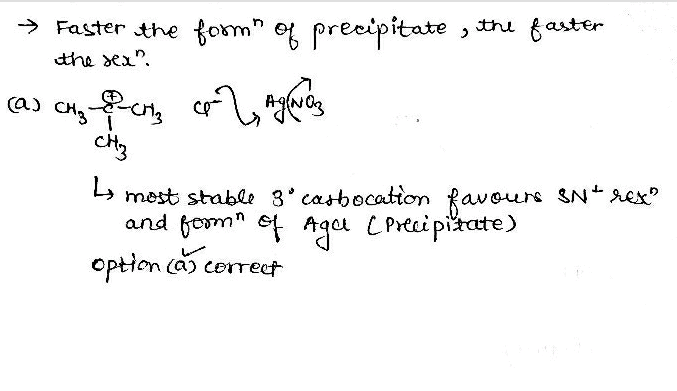 → Faster the formⁿ of precipitate, the faster
the rexⁿ.
(a) CH₃-C-CH₃ Cl⁻ AgNO₃
⊕
CH₃
↳ most stable 3° carbocation favours SN¹ rexⁿ
and formⁿ of Agcl (Precipitate)
option (a) correct